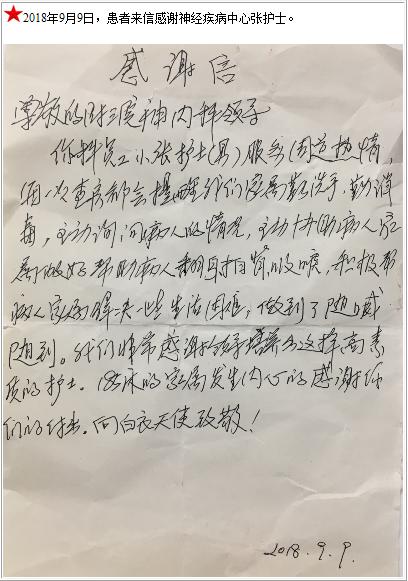 2018年9月9日，患者来信感谢神经疾病中心张护士。
感谢信
尊敬的附三院神内科领导
你科员工小张护士(男)服务周道热情，
每一次查房都会提醒我们家属勤洗手，勤消
毒，主动询问病人的情况，主动协助病人家
属做好帮助病人翻身拍背吸痰，积极帮
病人家属解决一些生活困难，做到了随喊
随到。我们非常感谢领导培养出这样高素
质的护士。床的家属发至内心的感谢你
们的付出。向白衣天使致敬！
2018.9.9.